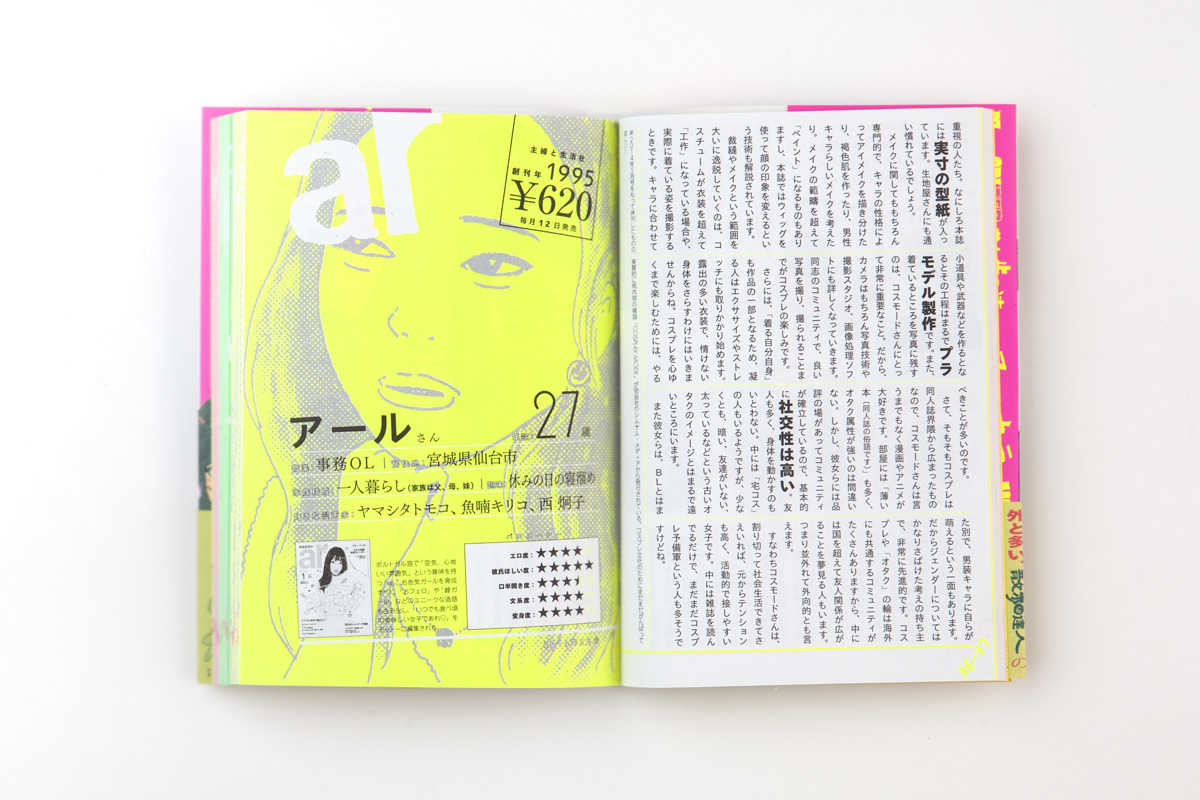 ar
主婦と生活社
創刊年 1995
¥620
毎月12日発売
アールさん
27歳
事務OL
宮城県仙台市
一人暮らし(家族は父、母、妹)
休みの日の寝溜め
ヤマシタトモコ、魚喃キリコ、西 炯子
ポルトガル語で「空気、心地
エロ度:★★★★
彼氏ほしい度:★★★★★
口半開き度:
文系度:★★★★
変身度:★★★★
重視の人たち。なにしろ本誌
には実寸の型紙が入っ
ています。生地屋さんにも通
い慣れているでしょう。
メイクに関してももちろん
専門的で、キャラの性格によ
ってアイメイクを描き分けた
り、褐色肌を作ったり、男性
キャラらしいメイクを考えた
り。メイクの範疇を超えて
「ペイント」になるものもあり
ますし、本誌ではウィッグを
使って顔の印象を変えるとい
う技術も解説されています。
裁縫やメイクという範囲を
大いに逸脱していくのは、コ
スチュームが衣装を超えて
「工作」になっている場合や、
実際に着ている姿を撮影する
ときです。キャラに合わせて
小道具や武器などを作るとな
るとその工程はまるでプラ
モデル製作です。また、
着ているところを写真に残す
のは、コスモードさんにとっ
て非常に重要なこと。だから、
カメラはもちろん写真技術や
撮影スタジオ、画像処理ソフ
トにも詳しくなっていきます。
同志のコミュニティで、良い
写真を撮り、撮られることま
でがコスプレの楽しみです。
さらには、「着る自分自身」
も作品の一部となるため、凝
る人はエクササイズやストレ
ッチにも取りかかり始めます。
露出の多い衣装で、情けない
身体をさらすわけにはいきま
せんからね。コスプレを心ゆ
くまで楽しむためには、やる
べきことが多いのです。
さて、そもそもコスプレは
同人誌界隈から広まったもの
なので、コスモードさんは言
うまでもなく漫画やアニメが
大好きです。部屋には「薄い
本(同人誌の俗語です)」も多く、
オタク属性が強いのは間違い
ない。しかし、彼女らには品
評の場があってコミュニティ
が確立しているので、基本的
に社交性は高い。友
人も多く、身体を動かすのも
いとわない。中には「宅コス」
の人もいるようですが、少な
くとも、暗い、友達がいない、
太っているなどという古いオ
タクのイメージとはまるで遠
いところにいます。
また彼女らは、BLとはま
た別で、男装キャラに自らが
萌えるという一面もあります。
だからジェンダーについては
かなりさばけた考えの持ち主
で、非常に先進的です。コス
プレや「オタク」の輪は海外
にも共通するコミュニティが
たくさんありますから、中に
は国を超えて友人関係が広が
ることを夢見る人もいます。
つまり並外れて外向的とも言
えます。
すなわちコスモードさんは、
割り切って社会生活できてさ
えいれば、元からテンション
も高く、活動的で接しやすい
女子です。中には雑誌を読ん
でるだけで、まだまだコスプ
レ予備軍という人も多そうで
すけどね。